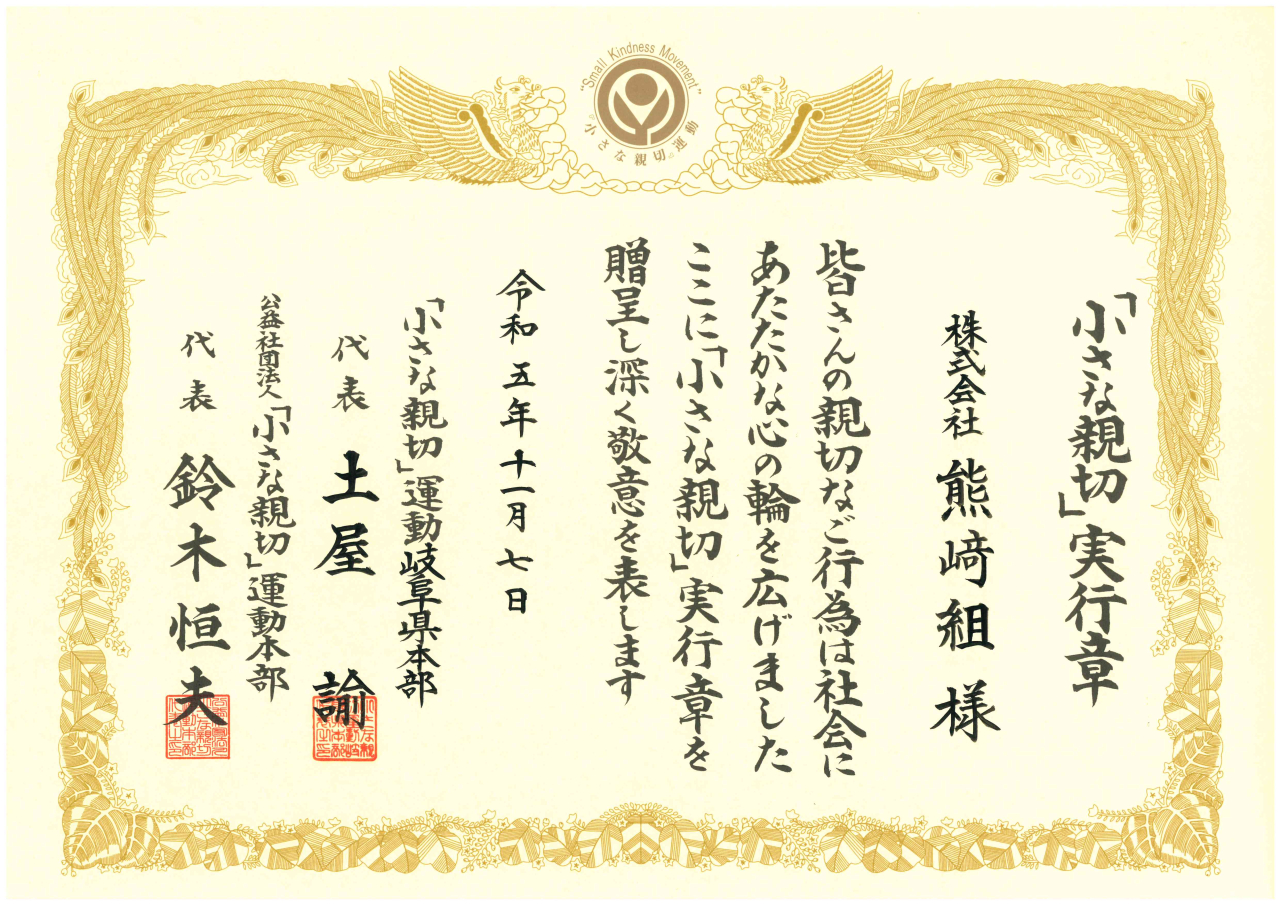 "Small Kindness Movement"
“小さな親切„運動
「小さな親切」実行章
株式会社 熊﨑組 様
皆さんの親切なご行為は社会に
あたたかな心の輪を広げました
ここに「小さな親切」実行章を
贈呈し深く敬意を表します
令和五年十一月七日
「小さな親切」運動岐阜県本部
代表 土屋 諭
公益社団法人「小さな親切」運動本部
代表 鈴木恒夫